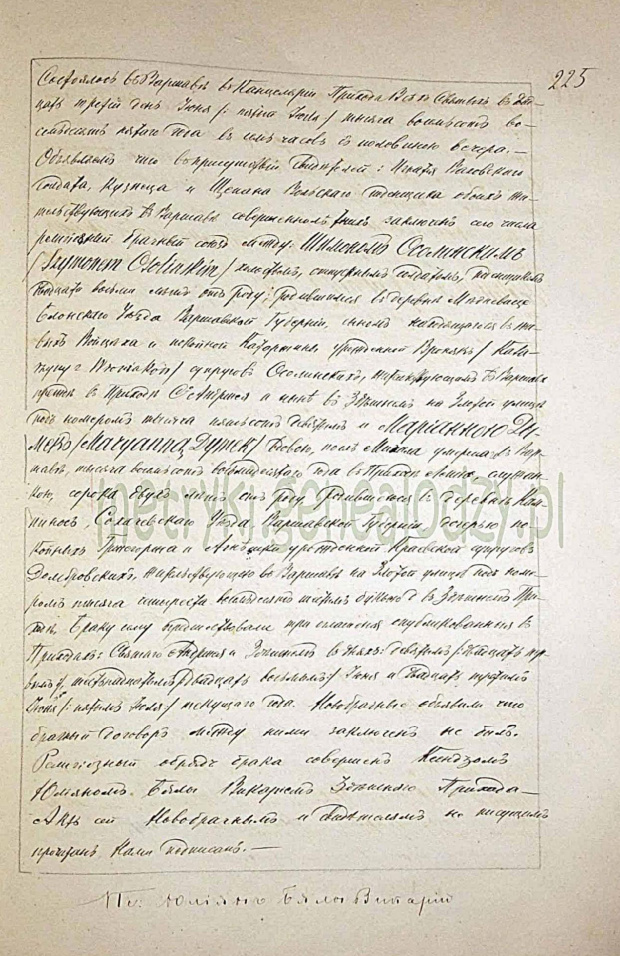 225
Состоялось въ Варшавѣ въ Канцеляріи Прихода Всѣхъ Святыхъ въ Двад-
цать третій день Іюня /: пятый Іюля / тысяча восемьсотъ во-
семьдесятъ пятаго года въ семь часовъ съ половиною вечера. —
Объявляемъ что въ присутствіи Свидѣтелей: Игнатія
Солдата, Кузнеца и Щепана Вольскаго обоихъ жи-
тельствующихъ въ Варшавѣ совершеннолѣтнихъ заключенъ сего числа
религіозный брачный союзъ между: Шимономъ Осолинскимъ
/Szymonem Osolińskim/ холостымъ, отпускнымъ солдатомъ,
двадцать восемь лѣтъ отъ роду; родившимся въ деревнѣ
Блонскаго Уѣзда Варшавской Губерніи, сыномъ находящагося въ жи-
выхъ Войцѣха и покойной Катаржины урожденной /Kata-
rzyny z / супруговъ Осолинскихъ, жительствующимъ въ Варшавѣ
прежде въ Приходѣ С. Антонія и нынѣ въ Здѣшнемъ на Злотой улицѣ
подъ номеромъ тысяча пятьсотъ и Маріанною Ду-
метъ /Maryanną Dymek/ вдовою, послѣ Михала умершаго въ Вар-
шавѣ, тысяча восемьсотъ года въ Приходѣ служан-
кою, сорока двухъ лѣтъ отъ роду родившеюся въ деревнѣ Кам-
пиносъ Сохачевскаго Уѣзда, Варшавской Губерніи дочерью по-
койныхъ Григоржа и урожденной супруговъ
Домбровскихъ, жительствующею въ Варшавѣ на Злотой улицѣ подъ номе-
ромъ тысяча четыреста восемьдесятъ въ Здѣшнемъ При-
ходѣ. Браку сему предшествовали три оглашенія опубликованныя въ
Приходахъ: Святаго Андрея и Здѣшнемъ въ дняхъ: девятомъ /: двадцать пер-
вымъ /, шестнадцатомъ /двадцать восьмымъ/ Іюня и двадцать третьемъ
Іюня /: пятомъ Іюля / текущаго года. Новобрачные объявили что
брачный договоръ между ними заключенъ не былъ.
Религіозный обрядъ брака совершенъ Ксендзомъ
Юліаномъ Бялы Викаріемъ Здѣшняго Прихода —
Актъ сей Новобрачнымъ и Свидѣтелямъ не пишущимъ
прочитанъ Нами подписанъ. —
Кс. Юліанъ Бялы Викарій
metryki.genealodzy.pl